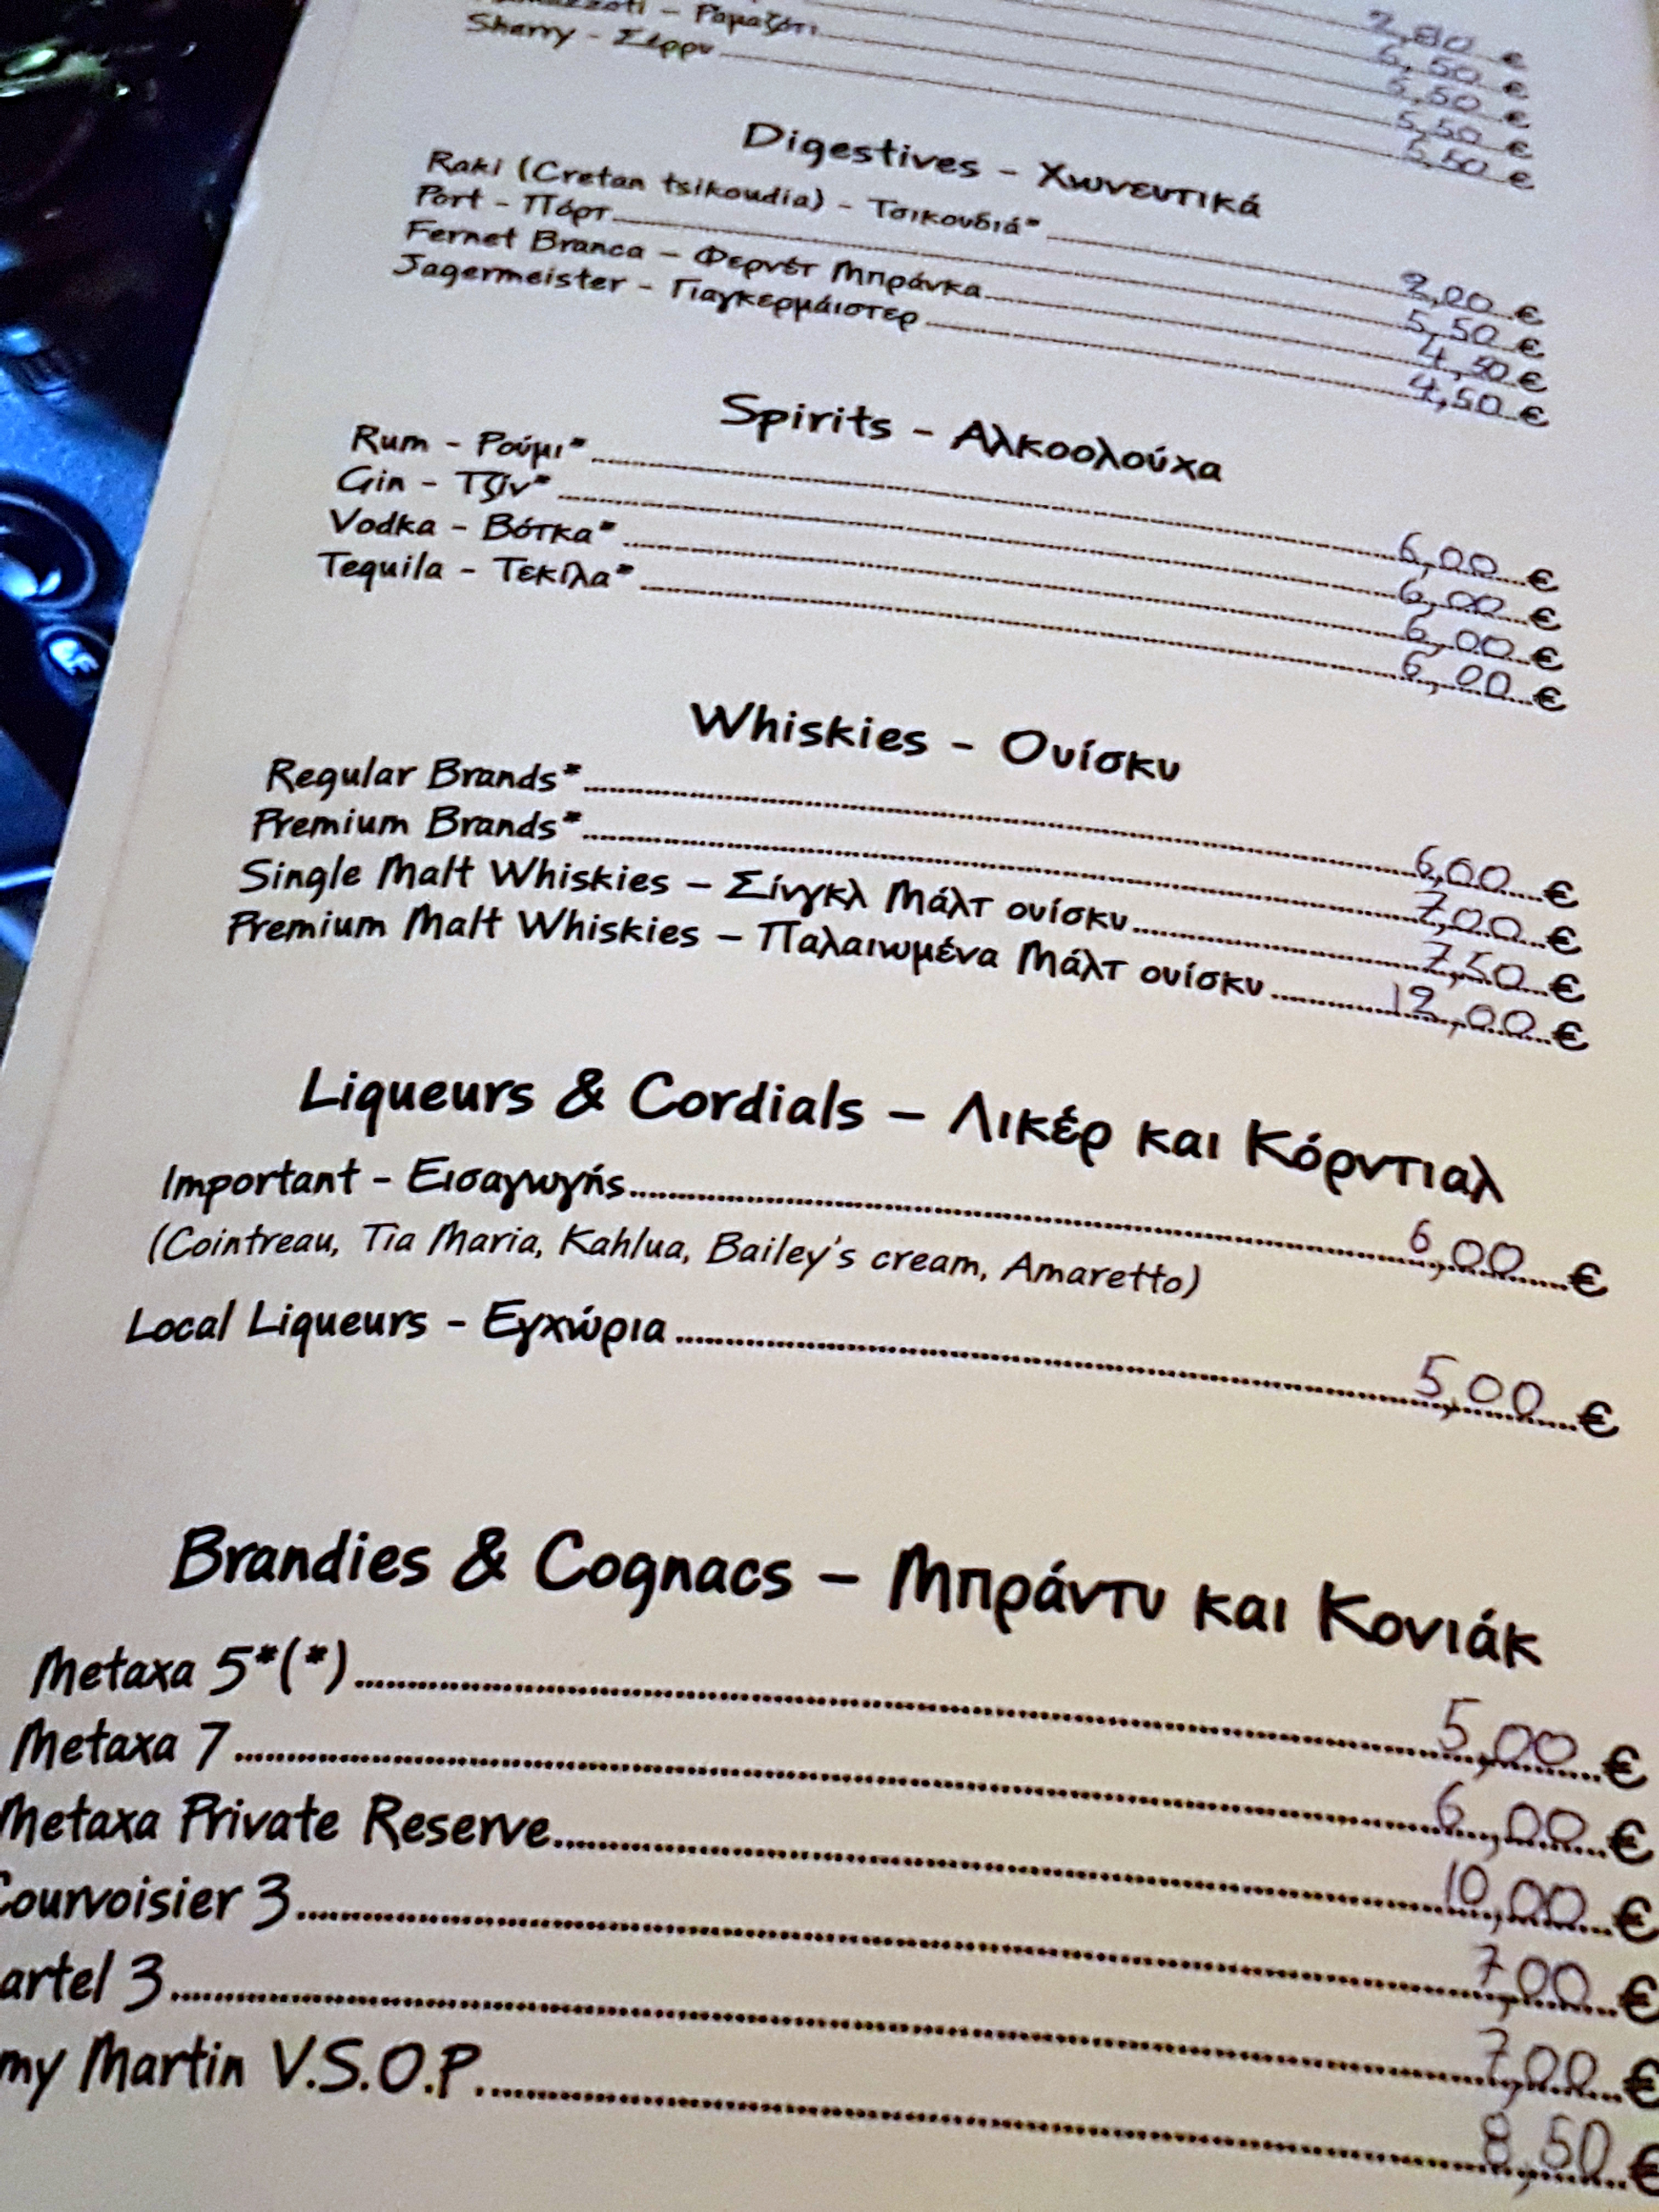 2,80 €
6,50 €
5,50 €
Ραμαζότι 5,50 €
Sherry - Σέρρυ 5,50 €
Digestives - Χωνευτικά
Raki (Cretan tsikoudia) - Τσικουδιά* 2,00 €
Port - Πόρτ 5,50 €
Fernet Branca - Φερνέτ Μπράνκα 4,50 €
Jagermeister - Γιαγκερμάιστερ 4,50 €
Spirits - Αλκοολούχα
Rum - Ρούμι* 6,00 €
Gin - Τζίν* 6,00 €
Vodka - Βότκα* 6,00 €
Tequila - Τεκίλα* 6,00 €
Whiskies - Ουίσκυ
Regular Brands* 6,00 €
Premium Brands* 7,00 €
Single Malt Whiskies - Σίνγκλ Μάλτ ουίσκυ 7,50 €
Premium Malt Whiskies - Παλαιωμένα Μάλτ ουίσκυ 12,00 €
Liqueurs & Cordials - Λικέρ και Κόρντιαλ
Important - Εισαγωγής 6,00 €
(Cointreau, Tia Maria, Kahlua, Bailey's cream, Amaretto)
Local Liqueurs - Εγχώρια 5,00 €
Brandies & Cognacs - Μπράντυ και Κονιάκ
Metaxa 5*(*) 5,00 €
Metaxa 7 6,00 €
Metaxa Private Reserve 10,00 €
Courvoisier 3 7,00 €
artel 3 7,00 €
my Martin V.S.O.P. 8,50 €